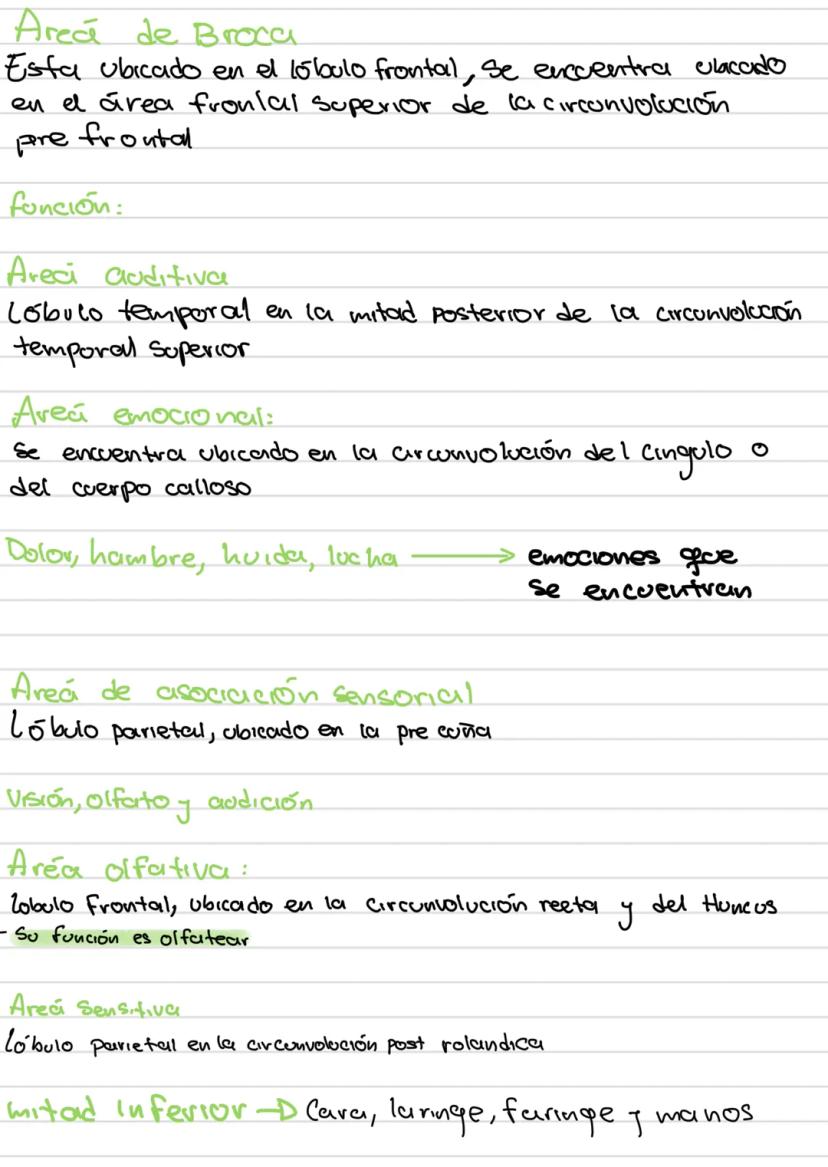 Areá de Broca
Esta ubicado en el lóbulo frontal, se encuentra ubicado
en el área frontal superior de la circonvolución
pre frontal
función:
Areá auditiva
Lóbulo temporal en la mitad posterior de la circonvolución
temporal superior
Areá emocional:
Se encuentra ubicando en la circunvolución del cingulo o
del cuerpo calloso
Dolor, hambre, huida, lucha → emociones que
se encuentran
Areá de asociación sensorial
Lóbulo parietal, ubicado en la pre cuña
Visión, olfato y audición
Aréa olfativa:
lobulo frontal, ubicado en la circunvolución recta y del Huncus
- Su función es olfatear
Areá Sensitiva
Lóbulo parietal en la circunvolución post rolandica
mitad inferior → Cara, laringe, faringe y manos